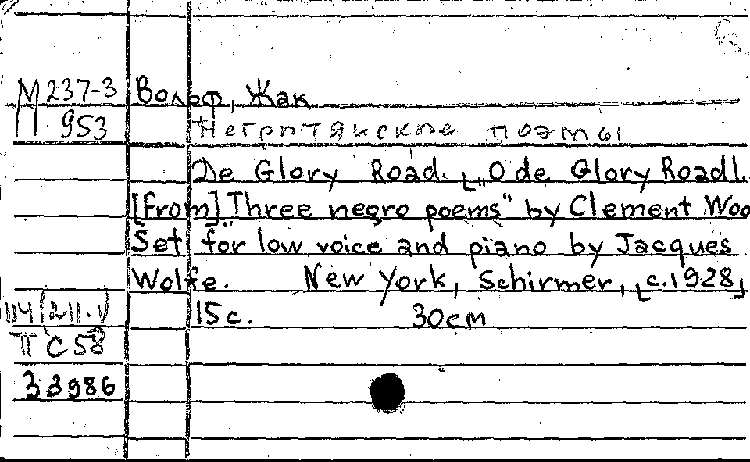 М 237-3 Вольф, Жак
П 953 Негритянские поэмы
De Glory Road. [„O de Glory Road".
[from] Three negro poems" by Clement Woo
Set for low voice and piano by Jacques
Wolfe. New York, Schirmer, [c.1928]
15 c. 30 cm
П С 58
33986